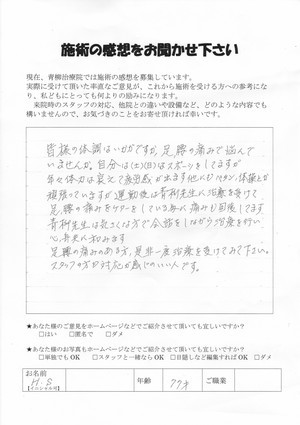 施術の感想をお聞かせ下さい
現在、青柳治療院では施術の感想を募集しています。
実際に受けて頂いた率直なご意見が、これから施術を受ける方への参考になり、私どもにとっても何よりの励みになります。
来院時のスタッフの対応、他院との違いや設備など、どのような内容でも構いませんので、お気づきのことをお寄せ頂ければ幸いです。
皆様の体調はいかがですか、足、腰の痛みで悩んで
いませんか。自分は(土)(日)はスポーツをしてますが
年々体力は衰えて疲労感が出ます
頑張っていますが運動後は青柳先生に治療を受けて
足、腰の痛みをケアーをしている為に痛みも回復してます
青柳先生は気さくな方で会話をしながら治療を行い
心身共に和みます
足、腰の痛みのある方、是非一度治療を受けてみて下さい。
スタッフの方の対応が感じのいい人です。
★あなた様のご意見をホームページなどでご紹介させて頂いても宜しいですか？
□はい □匿名で □ダメ
★あなた様のお写真もホームページなどでご紹介させて頂いても宜しいですか？
□単独でもOK □スタッフと一緒ならOK □目隠しなど編集すればOK □ダメ
お名前 H.S 年齢 77才 ご職業
【イニシャル可】